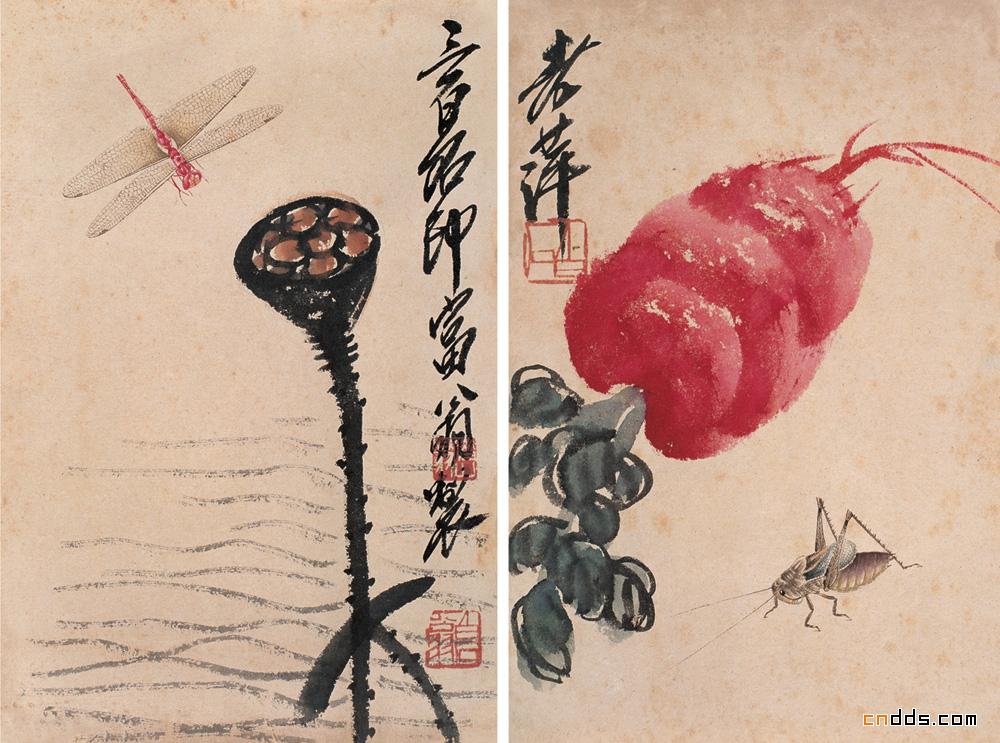 三百石印富翁製
老萍
cndds.com